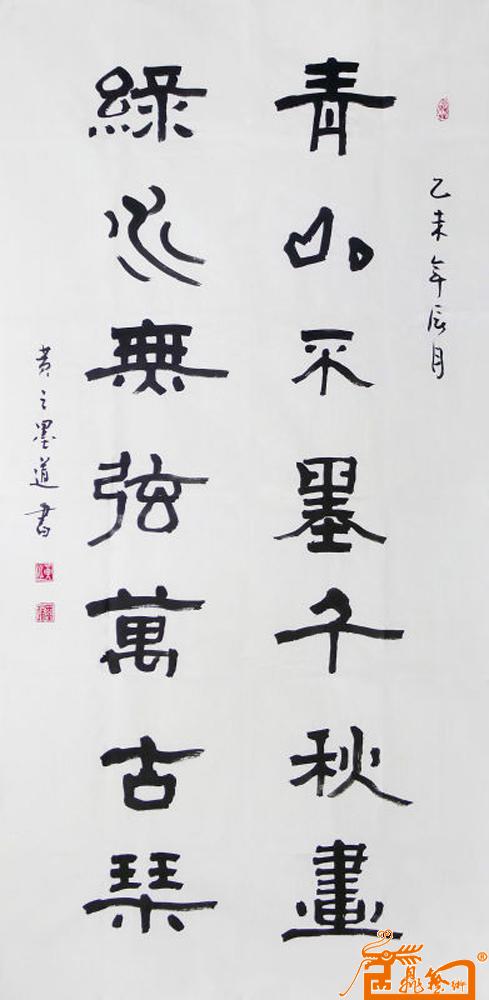 乙未年辰月
青山不墨千秋畫
綠水無弦萬古琴
黄之墨道書
鼎藝術